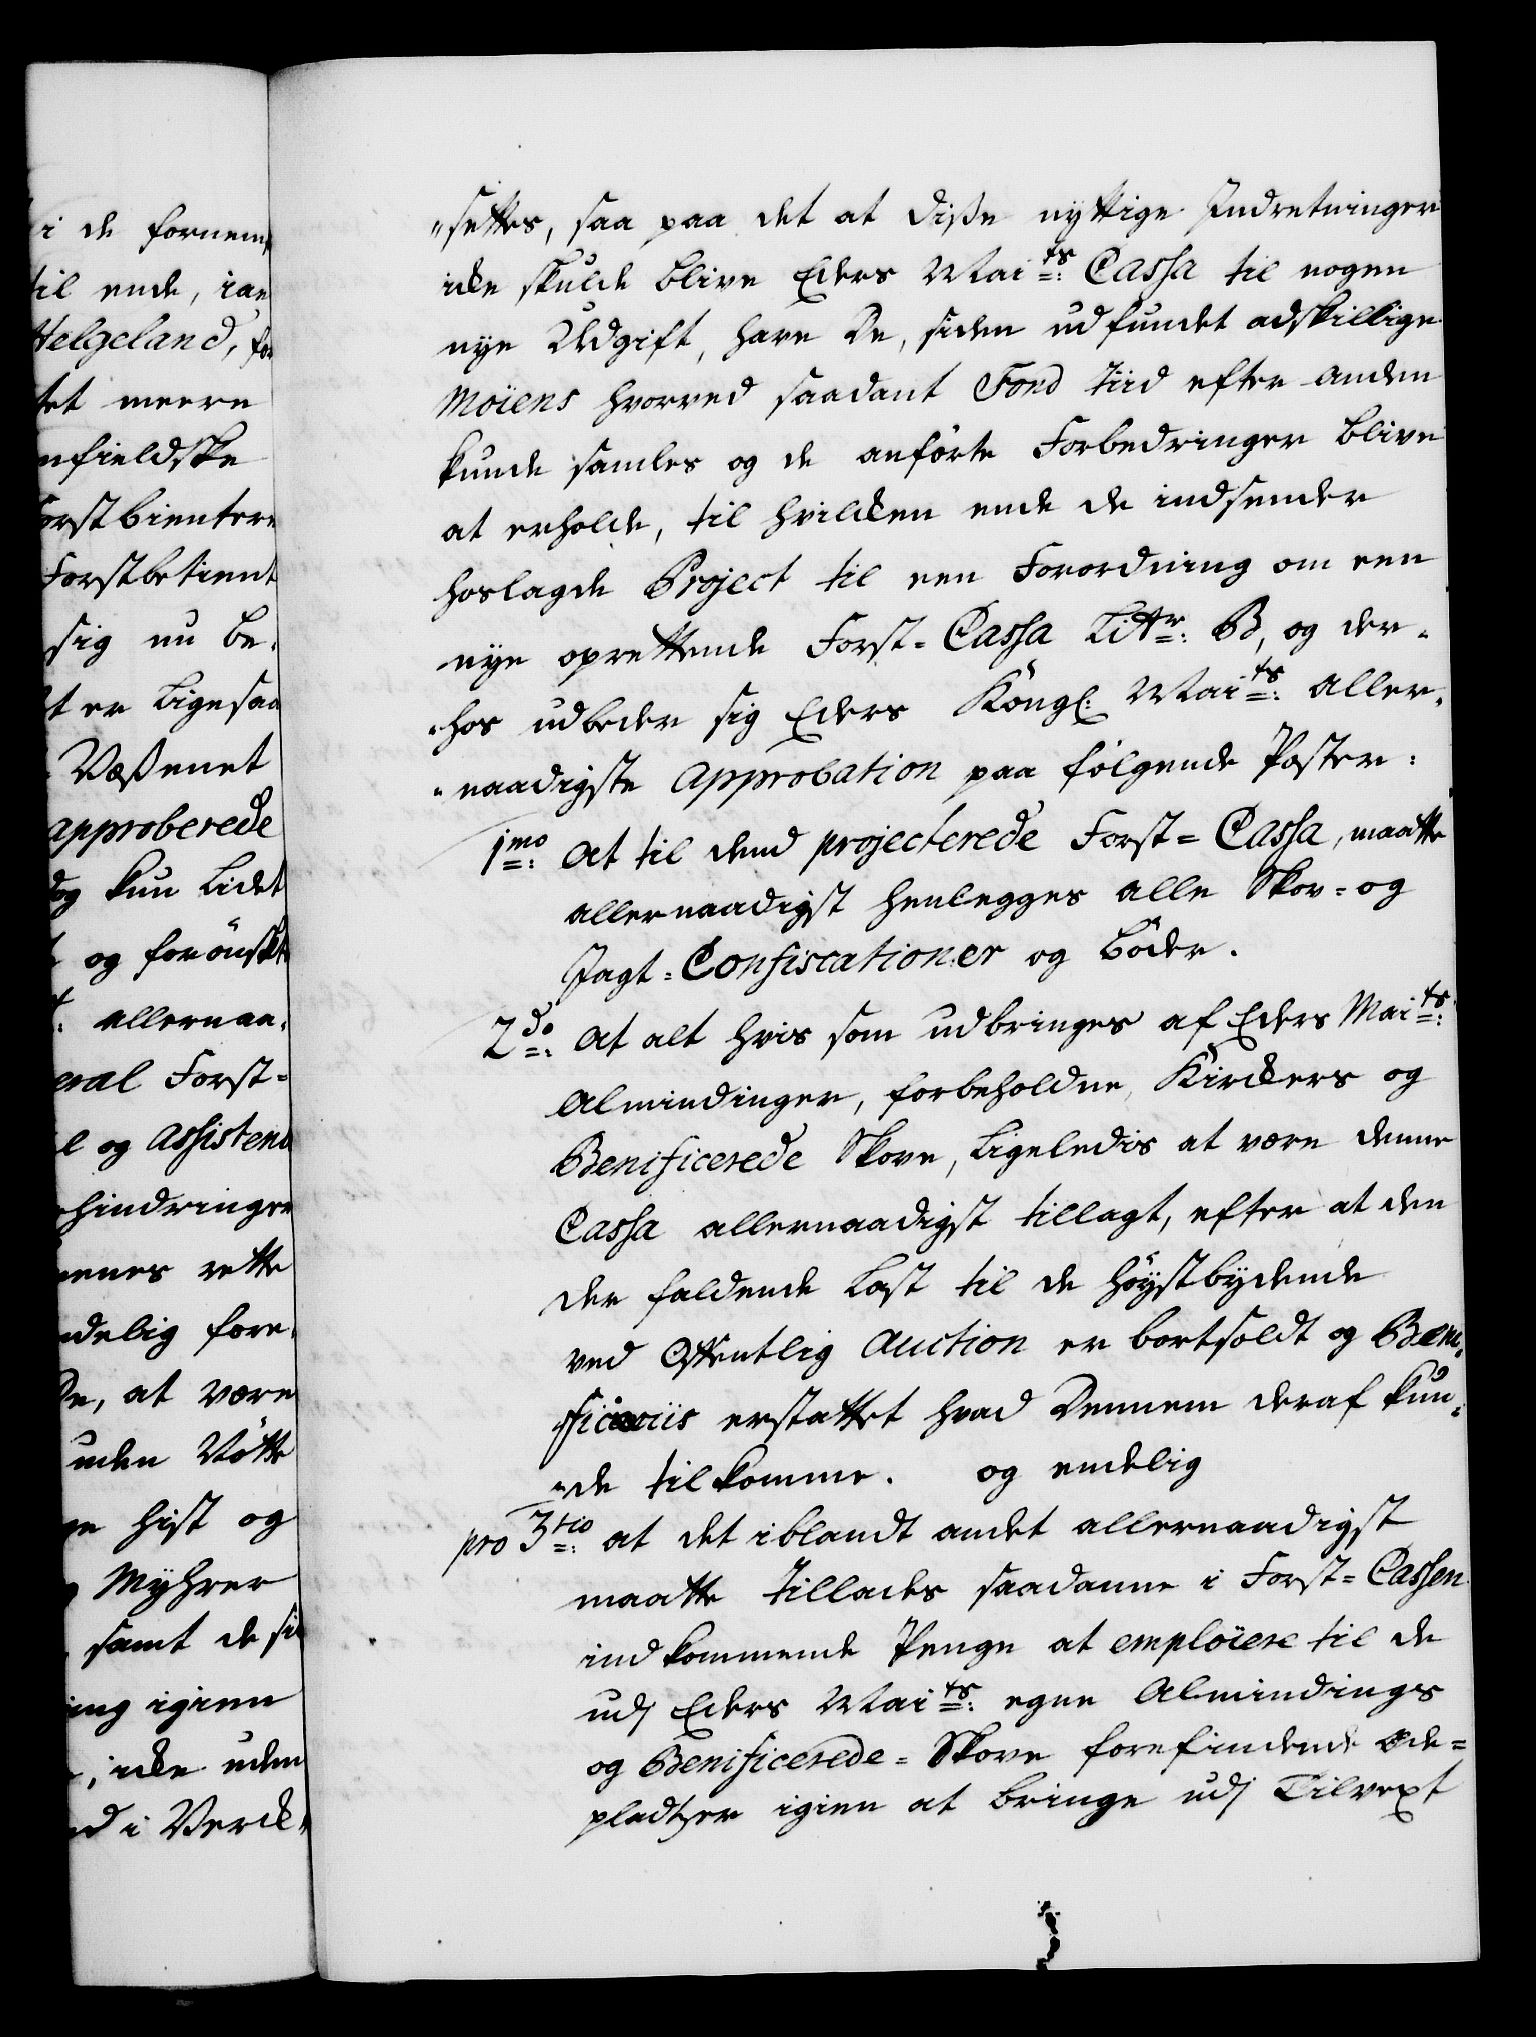 i de fornem
til ende, iae
Helgeland, for
tet meere
nfieldske
orstbientere
Forstbetient
sig nu be-
t er Ligesaa
Væßenet
approberede
dog kun Lidet
og forönskt
allernaa-
eral Forst-
l og Assistenc
hindringer
enes rette
ndelig fore-
De, at være
uden Nötte
ge hist og
Myhrer
samt de si
ing igien
, icke uden
ed i Verck-
"settes, saa paa det at diße nyttige Indretninger
icke skulde blive Eders Maits: Cassa til nogen
nye Udgift, have De, siden udfundet adskillige
Moiens hvorved saadant Fond tiid efter anden
kunde samles og de anförte Forbedringer blive
at erholde, til hvilcken ende de indsender
hoslagde Project til een Forordning om een
nye oprettende Forst-Cassa Littr: B, og der-
-hos udbeder sig Eders Köngl: Maits: Aller-
-naadigste Approbation paa fölgende Poster:
1mo: At til dend projecterede Forst-Cassa, maatte
allernaadigst henlegges alle Skov- og
Jagt-Confiscationer og Böder.
2do: At alt hvis som udbringes af Eders Maits:
Almindinger, forbeholdne, Kirckers og
Benificerede Skove, Ligeledis at være denne
Cassa allernaadigst tillagt, efter at den
der faldende Last til de höystbydende
ved Offentlig Auction er bortsoldt og Beni-
ficiariis erstattet hvad Dennem deraf kun-
-de tilkomme. og endelig
pro 3tio: at det iblandt andet allernaadigst
maatte tillades saadanne i Forst-Cassen
indkommende Penge at emploiere til de
udj Eders Maits: egne Almindings
og Benificerede-Skove forefindende öde-
pladtzer igien at bringe udj Tilvext